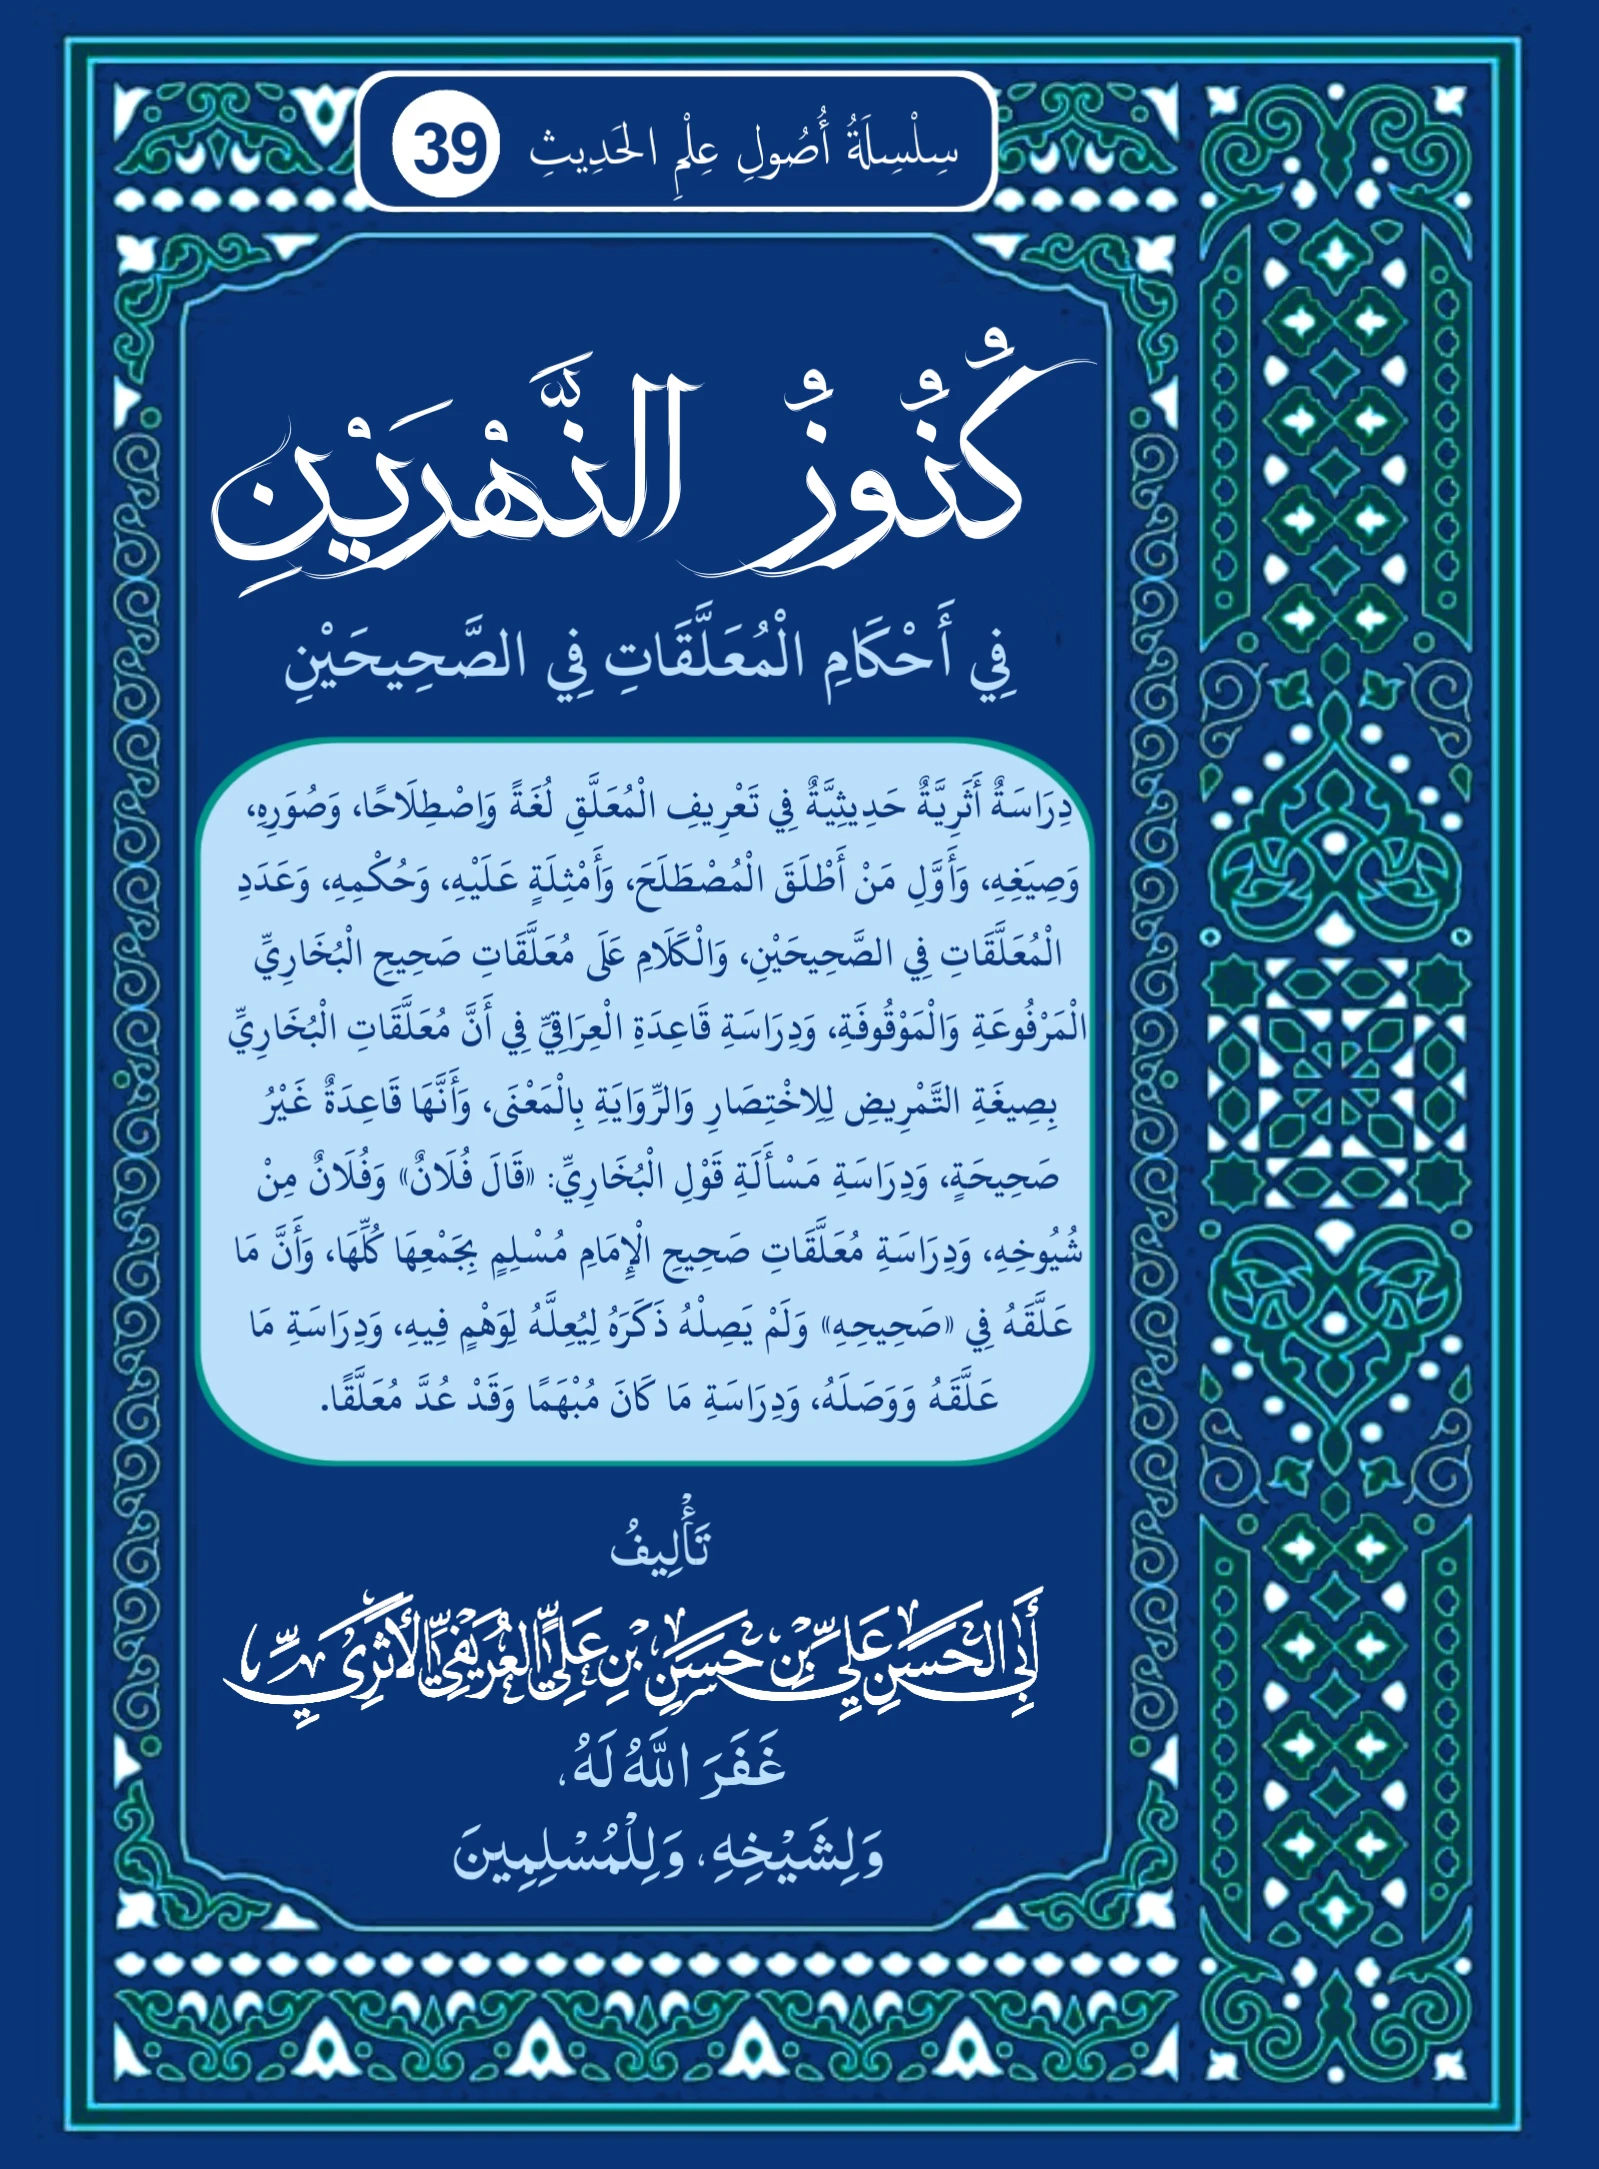 سِلْسِلَةُ أُصُولِ عِلْمِ الْحَدِيثِ 39
كُنُوزُ النَّهْرَيْنِ
فِي أَحْكَامِ الْمُعَلَّقَاتِ فِي الصَّحِيحَيْنِ
دِرَاسَةٌ أَثَرِيَّةٌ حَدِيثِيَّةٌ فِي تَعْرِيفِ الْمُعَلَّقِ لُغَةً وَاِصْطِلَاحًا، وَصُوَرِهِ،
وَصِيَغِهِ، وَأَوَّلِ مَنْ أَطْلَقَ الْمُصْطَلَحَ، وَأَمْثِلَةٍ عَلَيْهِ، وَحُكْمِهِ، وَعَدَدِ
الْمُعَلَّقَاتِ فِي الصَّحِيحَيْنِ، وَالْكَلَامِ عَلَى مُعَلَّقَاتِ صَحِيحِ الْبُخَارِيِّ
الْمَرْفُوعَةِ وَالْمَوْقُوفَةِ، وَدِرَاسَةِ قَاعِدَةِ الْعِرَاقِيِّ فِي أَنَّ مُعَلَّقَاتِ الْبُخَارِيِّ
بِصِيغَةِ التَّمْرِيضِ لِلِاخْتِصَارِ وَالرِّوَايَةِ بِالْمَعْنَى، وَأَنَّهَا قَاعِدَةٌ غَيْرُ
صَحِيحَةٍ، وَدِرَاسَةِ مَسْأَلَةِ قَوْلِ الْبُخَارِيِّ: «قَالَ فُلَانٌ» وَفُلَانٌ مِنْ
شُيُوخِهِ، وَدِرَاسَةِ مُعَلَّقَاتِ صَحِيحِ الْإِمَامِ مُسْلِمٍ بِجَمْعِهَا كُلِّهَا، وَأَنَّ مَا
عَلَّقَهُ فِي «صَحِيحِهِ» وَلَمْ يَصِلْهُ ذَكَرَهُ لِيُعِلَّهُ لِوَهْمٍ فِيهِ، وَدِرَاسَةِ مَا
عَلَّقَهُ وَوَصَلَهُ، وَدِرَاسَةِ مَا كَانَ مُبْهَمًا وَقَدْ عُدَّ مُعَلَّقًا.
تَأْلِيفُ
أَبِي الْحَسَنِ عَلِيِّ بْنِ حَسَنِ بْنِ عَلِيٍّ الْعُرَيْفِيِّ الْأَثَرِيِّ
غَفَرَ اللَّهُ لَهُ،
وَلِشَيْخِهِ، وَلِلْمُسْلِمِينَ